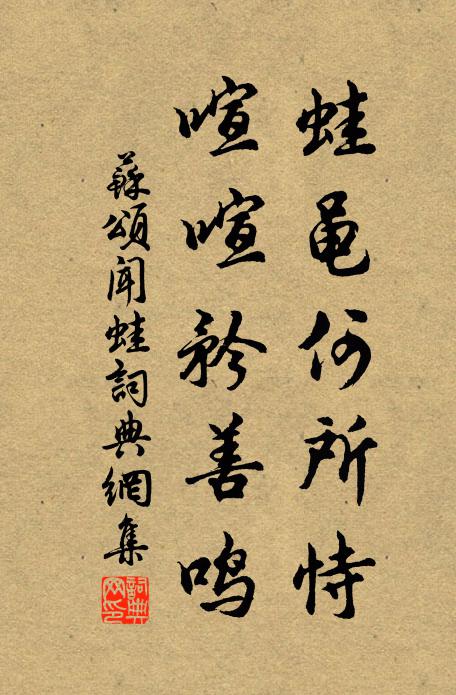 蛙黽何所恃
喧喧矜善鳴
蘇頌聞蛙詞典網集
詞典網印